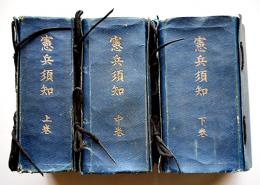 憲兵須知
上巻
憲兵須知
中巻
憲兵須知
下巻